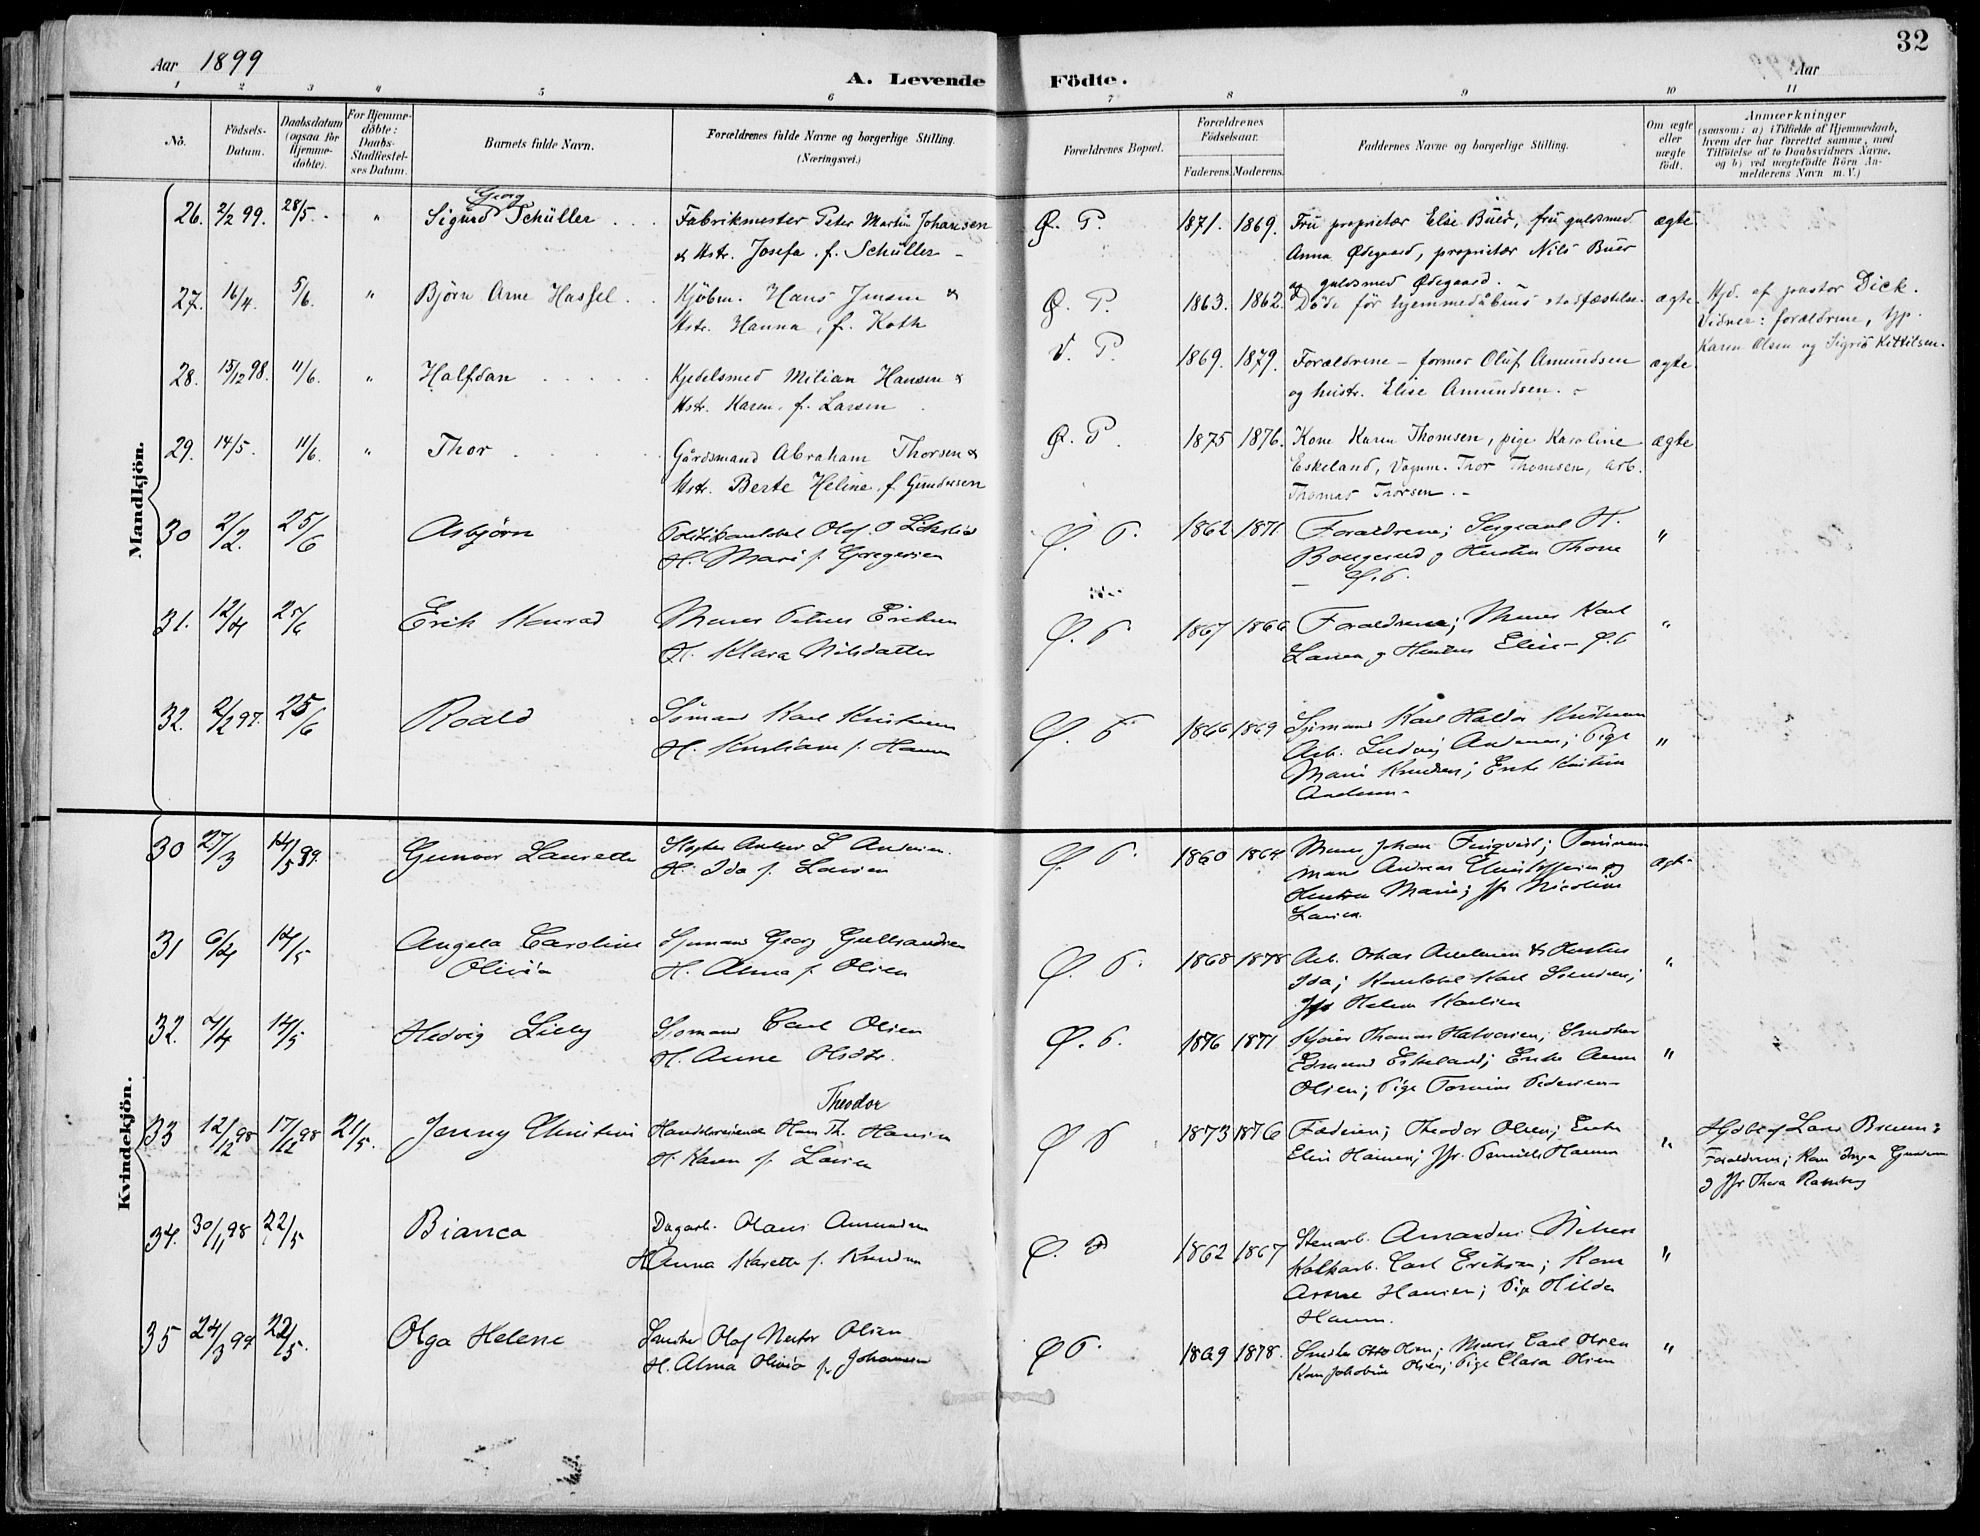 32
Aar 1899
A. Levende Födte.
Aar
1 2 3 4 5 6 7 8 9 10 11
No.
Födsels-Datum.
Daabsdatum (ogsaa för Hjemmedöbte).
For Hjemmedöbte: Daabs-Stadfæstelses Datum.
Barnets fulde Navn.
Forældrenes fulde Navne og borgerlige Stilling. (Næringsvei.)
Forældrenes Bopæl.
Forældrenes Födselsaar.
Faderens. Moderens.
Faddernes Navne og borgerlige Stilling.
Om ægte eller uægte födt.
Anmærkninger
(saasom: a) i Tilfælde af Hjemmedaab, hvem der har forrettet samme, med Tilföielse af to Daabsvidners Navne, og b) ved uægtefödte Börn Anmelderens Navn m. V.)
Mandkjön.
Georg
26. 2/2 99. 28/5. " Sigurd Schüller Fabrikmester Peter Martin Johansen Ø. P. 1871. 1869. Fru proprietær Elise Buer, fru guldsmed ægte
& Hstr. Josefa. f. Schüller Anna Ødegaard, proprietær Nils Buer
og guldsmed Ødegaard.
27. 16/4. 5/6. " Bjørn Arne Hassel Kjöbm. Hans Jensen & Ø. P. 1863. 1862. Døde før hjemmedåbens stadfæstelse. ægte. Hjd. af pastor Dick.
Hstr. Hanna, f. Koth Vidner: forældrene, Jfr.
Karen Olsen og Sigrid Kittilsen.
28. 15/12 98. 11/6. " Halfdan Kjedelsmed Milian Hansen & V. P. 1869. 1879. Forældrene - former Oluf Amundsen ægte
Hstr. Karen, f. Larsen og hustr. Elise Amundsen.
29. 14/5. 11/6. " Thor Gårdsmand Abraham Thorsen & Ø. P. 1875 1876. Kone Karen Thomsen, pige Karoline ægte
Hstr. Berte Heline, f. Gundersen Eskeland, Vognm. Tror Thomsen, arb.
Thomas Thorsen.
30 2/2. 25/6 Asbjörn Politikonstabel Olaf O Ø. P. 1862 1871 Forældrene; Sergeant H. "
H. Marie f. Gregersen og Hustru Thone
Ø. P.
31. 12/4 25/6 Erik Konrad Murer Petter Eriksen Ø. P 1867 1866 Forældrene; Murer Karl "
H. Klara Nilsdatter Larsen og Hustru Elise - Ø. P
32. 2/2 97. 25/6 Roald Sömand Karl Kristensen Ø. P 1866 1869 Sjömand Karl Kristensen "
H. Kristiane f. Hansen Arb. Ludvig Andersen; Pige
Marie Knudsen; Enke Kristine
Andersen
Kvindekjön.
30 27/3 14/5 99. Gunvor Laurette Anton L Andersen. Ø. P. 1860 1864 Murer Johan Tömmer- ægte
H. Ida f. Larsen mand Andreas og
Hustru Marie; Jfr Nicoline
Larsen
31 6/4 14/5 Angela Caroline Sjömand Georg Gulbrandsen Ø. P. 1868 1878 Arb. Oskar Andersen & Hustru "
Olivia H. Alma f. Olsen Ida; Konstabel Karl
Jfr Helene Karlsen
32. 7/4 14/5 Hedvig Lilly Sjömand Carl Olsen Ø. P. 1876 1871 Thomas Halvorsen; Snedker "
H. Anne Olsdtr. Edmund Eskeland; Enke Anna
Olsen; Pige Tomine Pedersen
Theodor
33 12/12 98 17/12 98 21/5. Jenny Christine Handelsreisende Hans Th. Hansen Ø P 1873 1876 Faderen; Theodor Olsen; Enke " Hjdbt af Lars Bruun;
H. Karen f. Larsen Elise Hansen; Jfr. Hansen Forældrene; Kone Inga
og Jfr Thora
34. 30/11 98 22/5 Bianca Dagarb. Olaus Amundsen Ø. P 1862 1867 Stenarb. Amandus Nilsen "
H Anna Karette f. Knudsen Kalkarb. Carl Eriksen; Kone
Hansen; Pige Hilda
Hansen.
35 24/3 99 22/5. Olga Helene Snedker Olaf Nestor Olsen Ø P. 1869 1878. Snedker Otto Olsen; Murer Carl Olsen "
H. Alma Olivia f. Johannesen Kone Jakobine Olsen; Pige Clara Olsen